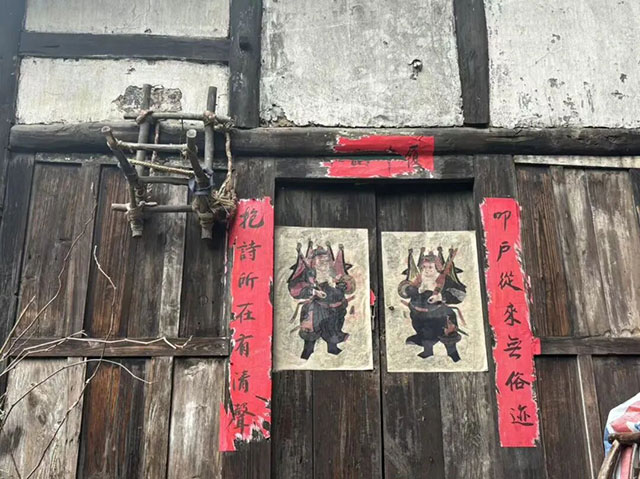 叩戶從來無俗迹
抱詩所在有清聲